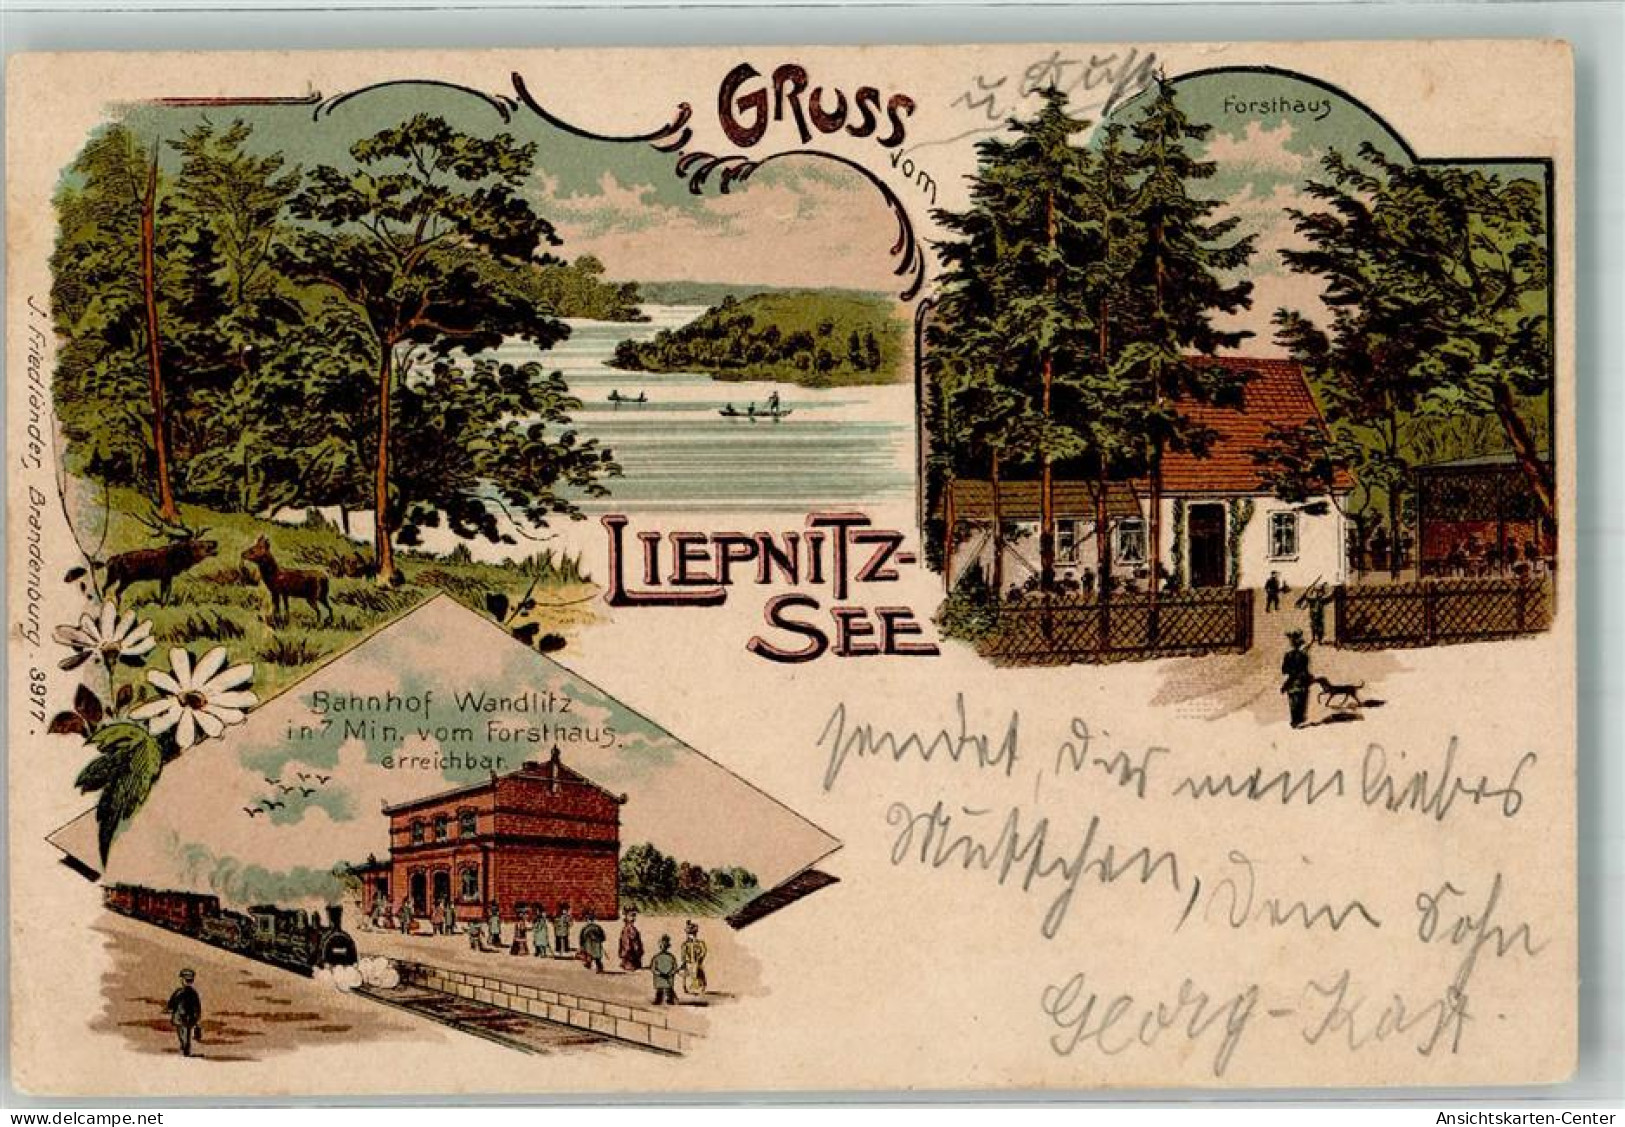 GRUSS u. Kuß
vom
LIEPNITZ-
SEE
Forsthaus
Bahnhof Wandlitz
in 7 Min. vom Forsthaus.
erreichbar.
J. Friedländer, Brandenburg. 3977.
sendet, Dir mein liebes
Muttchen, Dein Sohn
Georg-Karl.
Ansichtskarten-Center